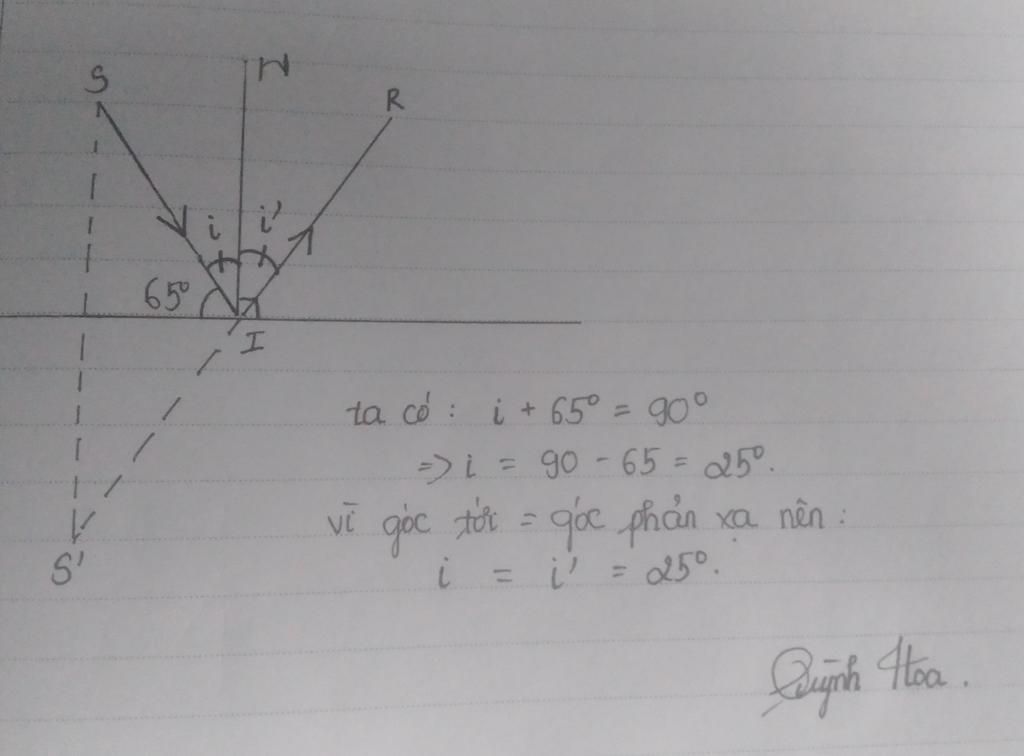 S
N
R
i
i'
65°
I
S'
ta có : i + 65° = 90°
=> i = 90 - 65 = 25°.
vì góc tới = góc phản xạ nên :
i = i' = 25°.
Quỳnh Hoa .